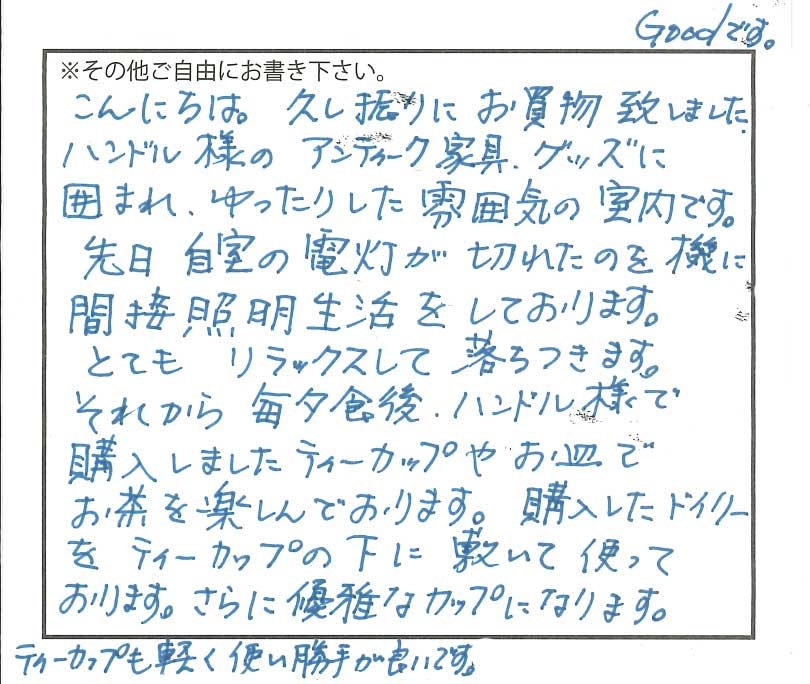 Goodです。
※その他ご自由にお書き下さい。
こんにちは。久し振りにお買物致しました。
ハンドル様のアンティーク家具、グッズに
囲まれ、ゆったりした雰囲気の室内です。
先日自室の電灯が切れたのを機に
間接照明生活をしております。
とてもリラックスして落ちつきます。
それから毎夕食後、ハンドル様で
購入しましたティーカップやお皿で
お茶を楽しんでおります。購入したドイリー
をティーカップの下に敷いて使って
おります。さらに優雅なカップになります。
ティーカップも軽く使い勝手が良いです。